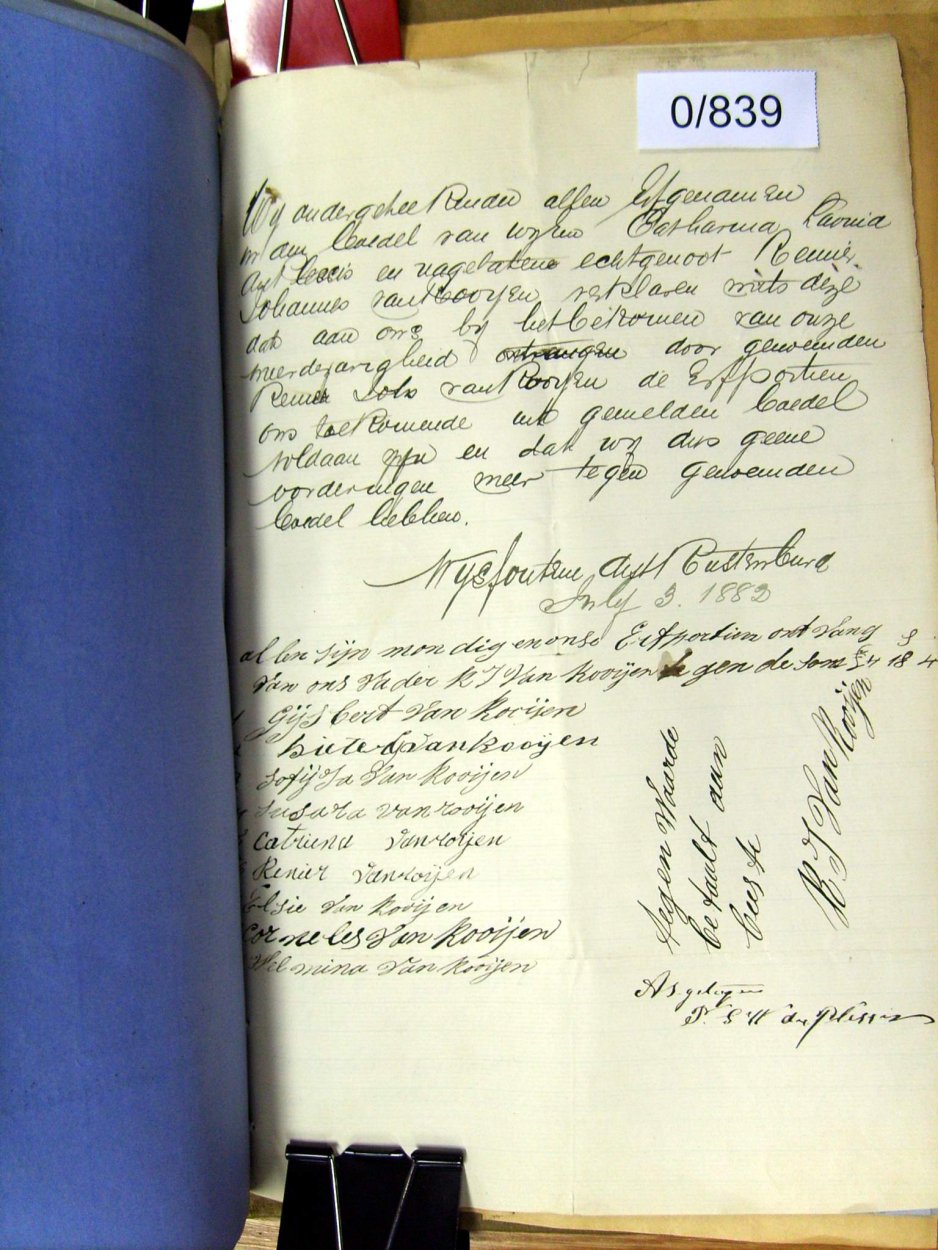 0/839
Wij ondergeteekenden allen Erfgenamen
in den boedel van wijlen Catharina Lavina
en nagelatene echtgenoot Renier
Johannes van Rooyen verklaren mits deze
dat aan ons bij het bekomen van onze
meerderjarigheid ontvangen door genoemden
Renier Joh van Rooyen de Erfportien
ons toekomende uit gemelden boedel
voldaan zijn en dat wij dus geene
vorderingen meer tegen genoemden
boedel hebben.
Wysfontein dist Rustenburg
July 3. 1882
allen sijn mondig en onse Erfportien ontvang
van ons vader R J Van Rooijen gen de som £4 18 4
Gijsbert Van Rooijen
Pieter G Van Rooijen
Sofijja Van Rooijen
Susara van rooijen
Catriena van rooijen
Renier van rooijen
Elsie van Rooijen
Corneles Van Rooijen
Wilmina Van Rooijen
tegen Waarde
betaalt aan
beeste
R J Van Rooijen
As getuigen
P. S W du Plessis